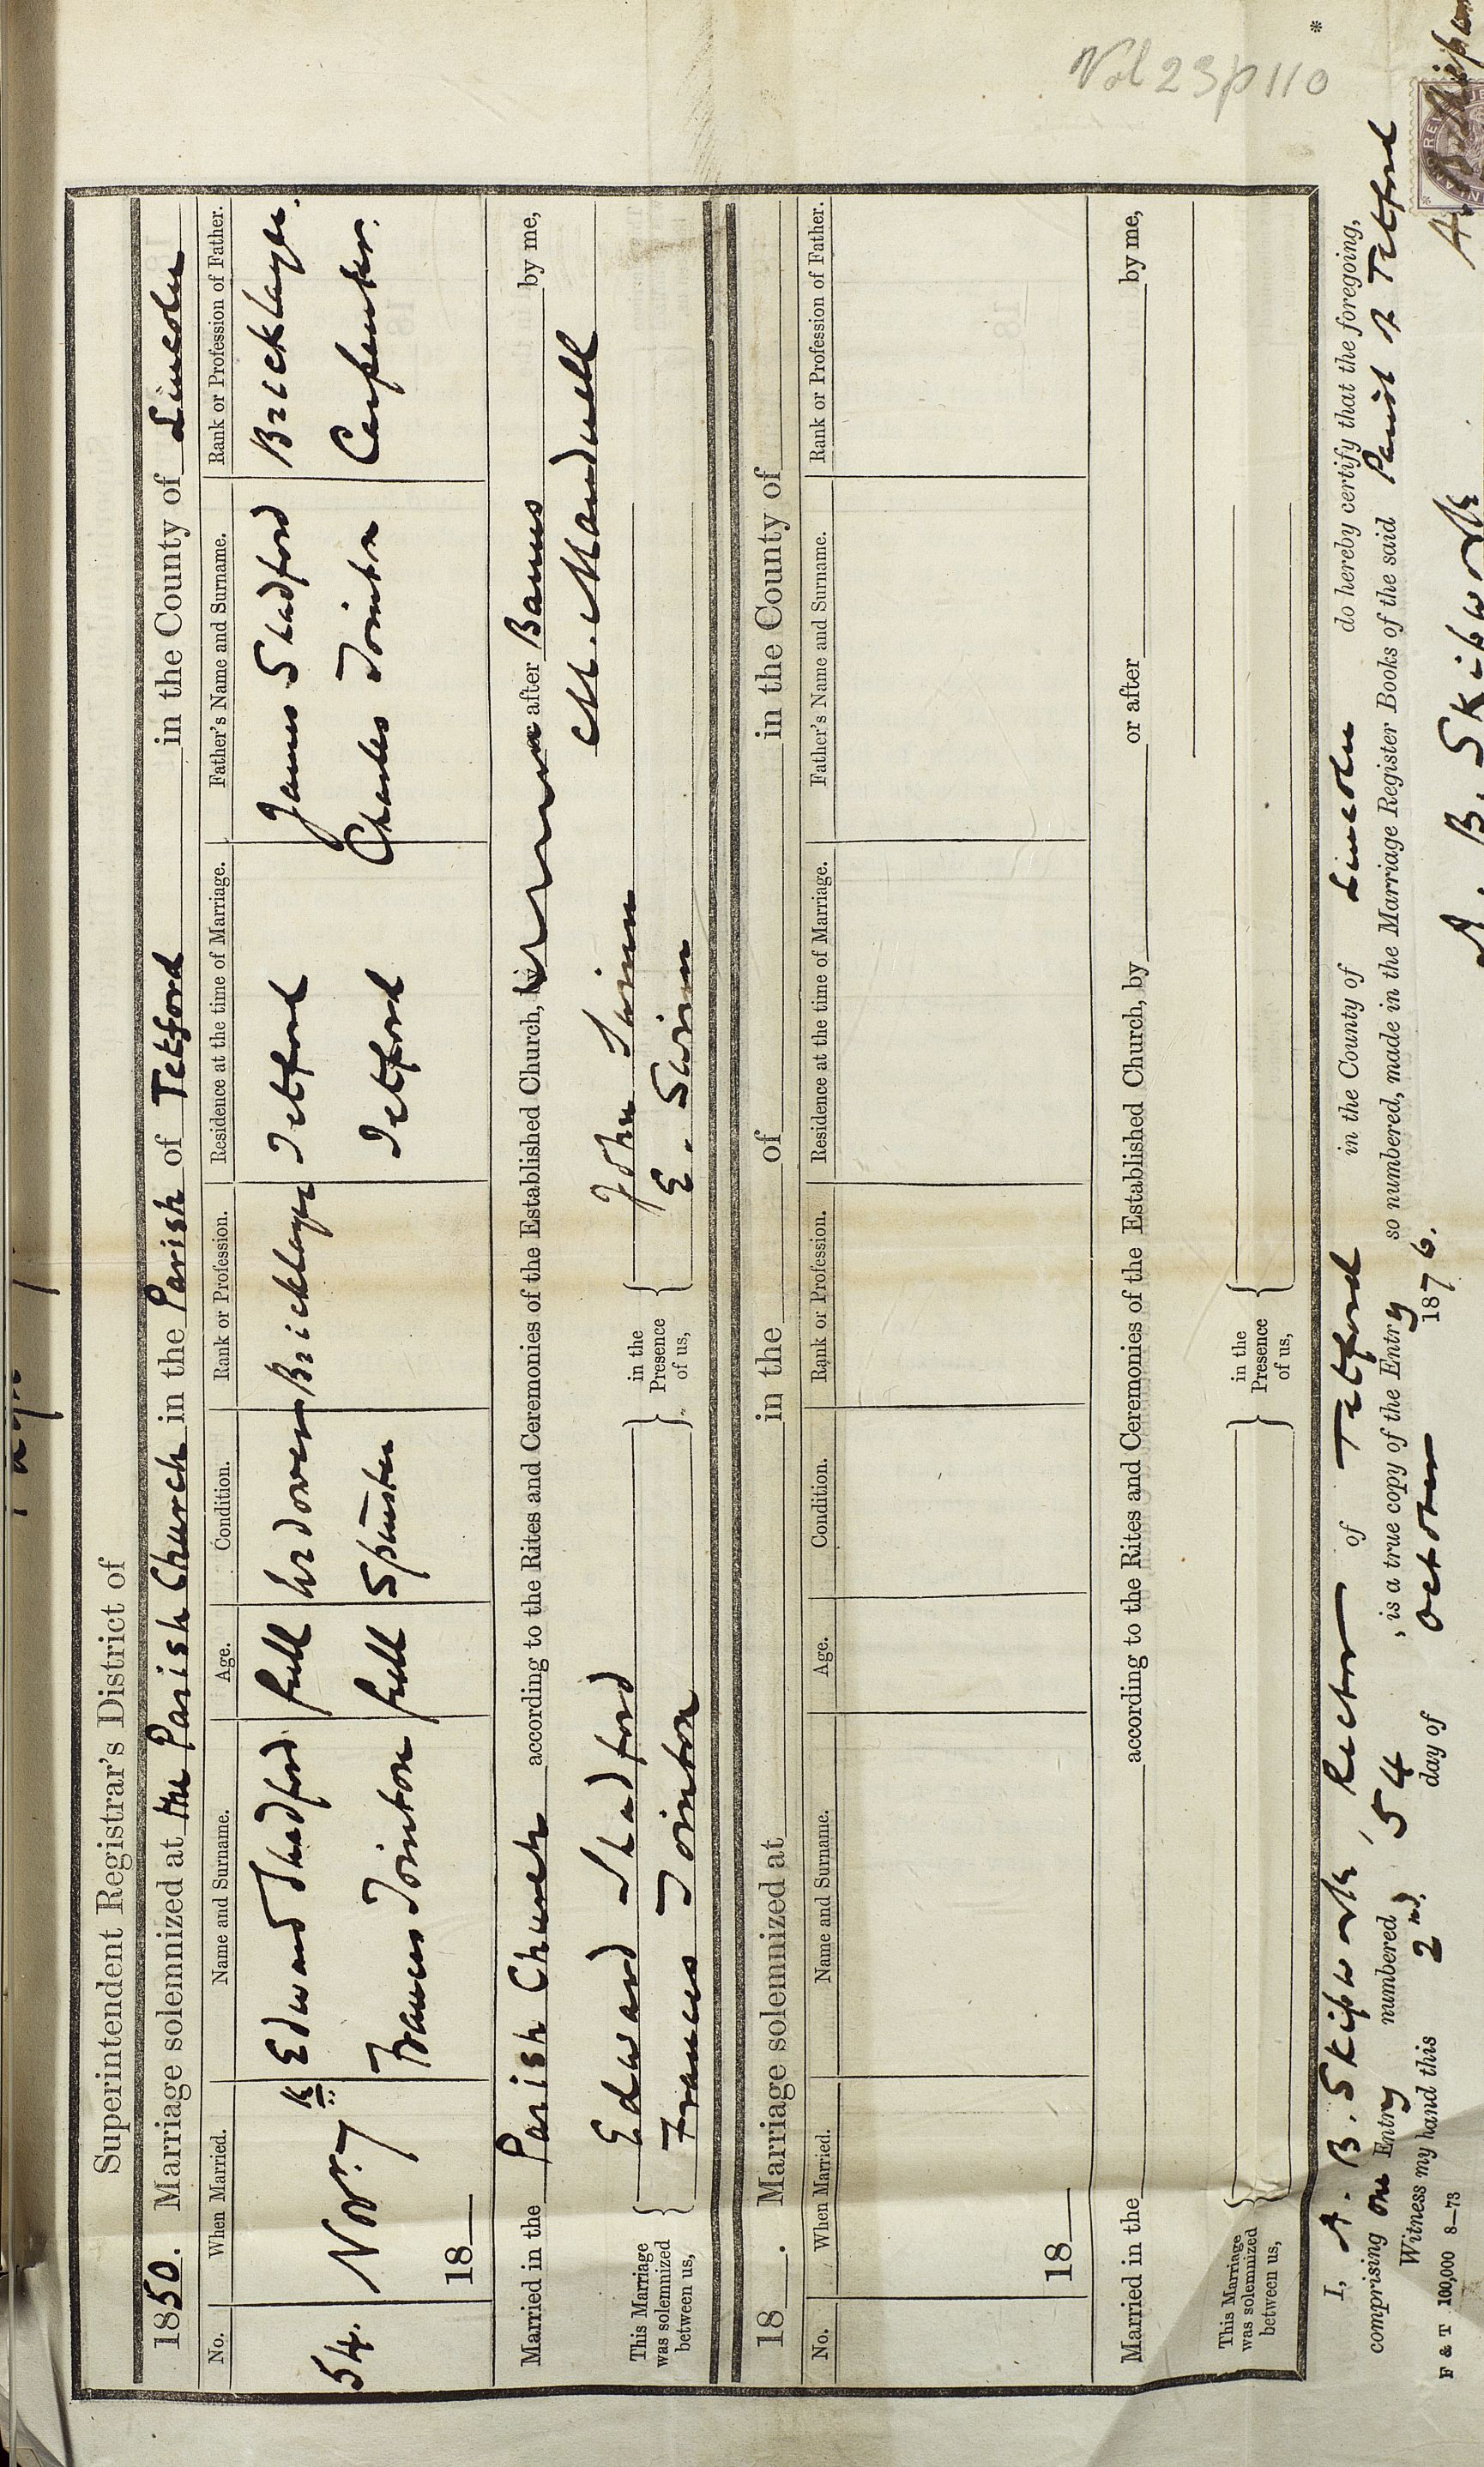 Vol 23 p 110
Superintendent Registrar's District of
1850. Marriage solemnized at the Parish Church in the Parish of Tetford in the County of Lincoln
No. When Married. Name and Surname. Age. Condition. Rank or Profession. Residence at the time of Marriage. Father's Name and Surname. Rank or Profession of Father.
54. Novr. 7th Edward Shadford full Widower Bricklayer Tetford James Shadford Bricklayer.
18 Frances Tointon full Spinster Tetford Charles Tointon Carpenter.
Married in the Parish Church according to the Rites and Ceremonies of the Established Church, by or after Banns by me,
M. Mandell
This Marriage was solemnized between us, { Edward Shadford } in the Presence of us, { John
Frances Tointon E.
18 . Marriage solemnized at in the of in the County of
No. When Married. Name and Surname. Age. Condition. Rank or Profession. Residence at the time of Marriage. Father's Name and Surname. Rank or Profession of Father.
18
Married in the according to the Rites and Ceremonies of the Established Church, by or after by me,
This Marriage was solemnized between us, { } in the Presence of us, {
I, A. B. Skipworth, Rector of Tetford in the County of Lincoln do hereby certify that the foregoing,
comprising one Entry numbered 54, is a true copy of the Entry so numbered, made in the Marriage Register Books of the said Parish of Tetford
Witness my hand this 2nd. day of October 1876.
A. B. Skipworth
F & T 100,000 8—73